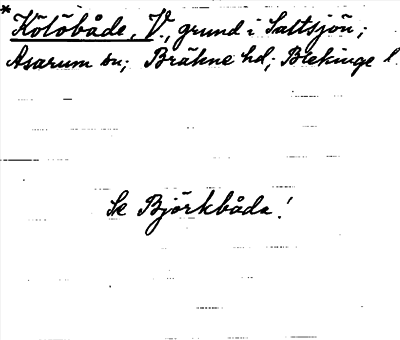 *Kölöbåde, V., grund i Saltsjön;
Asarum sn; Bräkne hd; Blekinge l
Se Björkbåda!